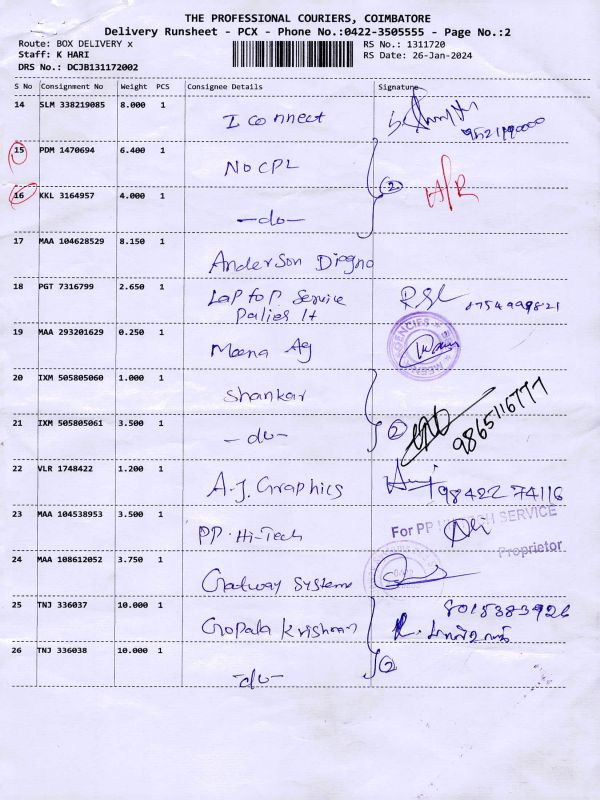 THE PROFESSIONAL COURIERS, COIMBATORE
Delivery Runsheet - PCX - Phone No.:0422-3505555 - Page No.:2
Route: BOX DELIVERY x
RS No.: 1311720
Staff: K HARI
RS Date: 26-Jan-2024
DRS No.: DCJB131172002
S No Consignment No Weight PCS Consignee Details Signature
14 SLM 338219085 8.000 1 I connect
15 PDM 1470694 6.400 1 NO CPL
② H/R
16 KKL 3164957 4.000 1 -do-
17 MAA 104628529 8.150 1 Anderson Diagno
18 PGT 7316799 2.650 1 Laptop Service
19 MAA 293201629 0.250 1 Meena Ag
AGENCIES
20 IXM 505805060 1.000 1 Shankar
② 9865116777
21 IXM 505805061 3.500 1 -do-
22 VLR 1748422 1.200 1 A.J. Graphics 98422 74116
23 MAA 104538953 3.500 1 PP. Hi-Tech
For PP HI-TECH SERVICE
Proprietor
24 MAA 108612052 3.750 1 Gatway Systems
25 TNJ 336037 10.000 1 Gopala Krishnan 8015383926
②
26 TNJ 336038 10.000 1 -do-